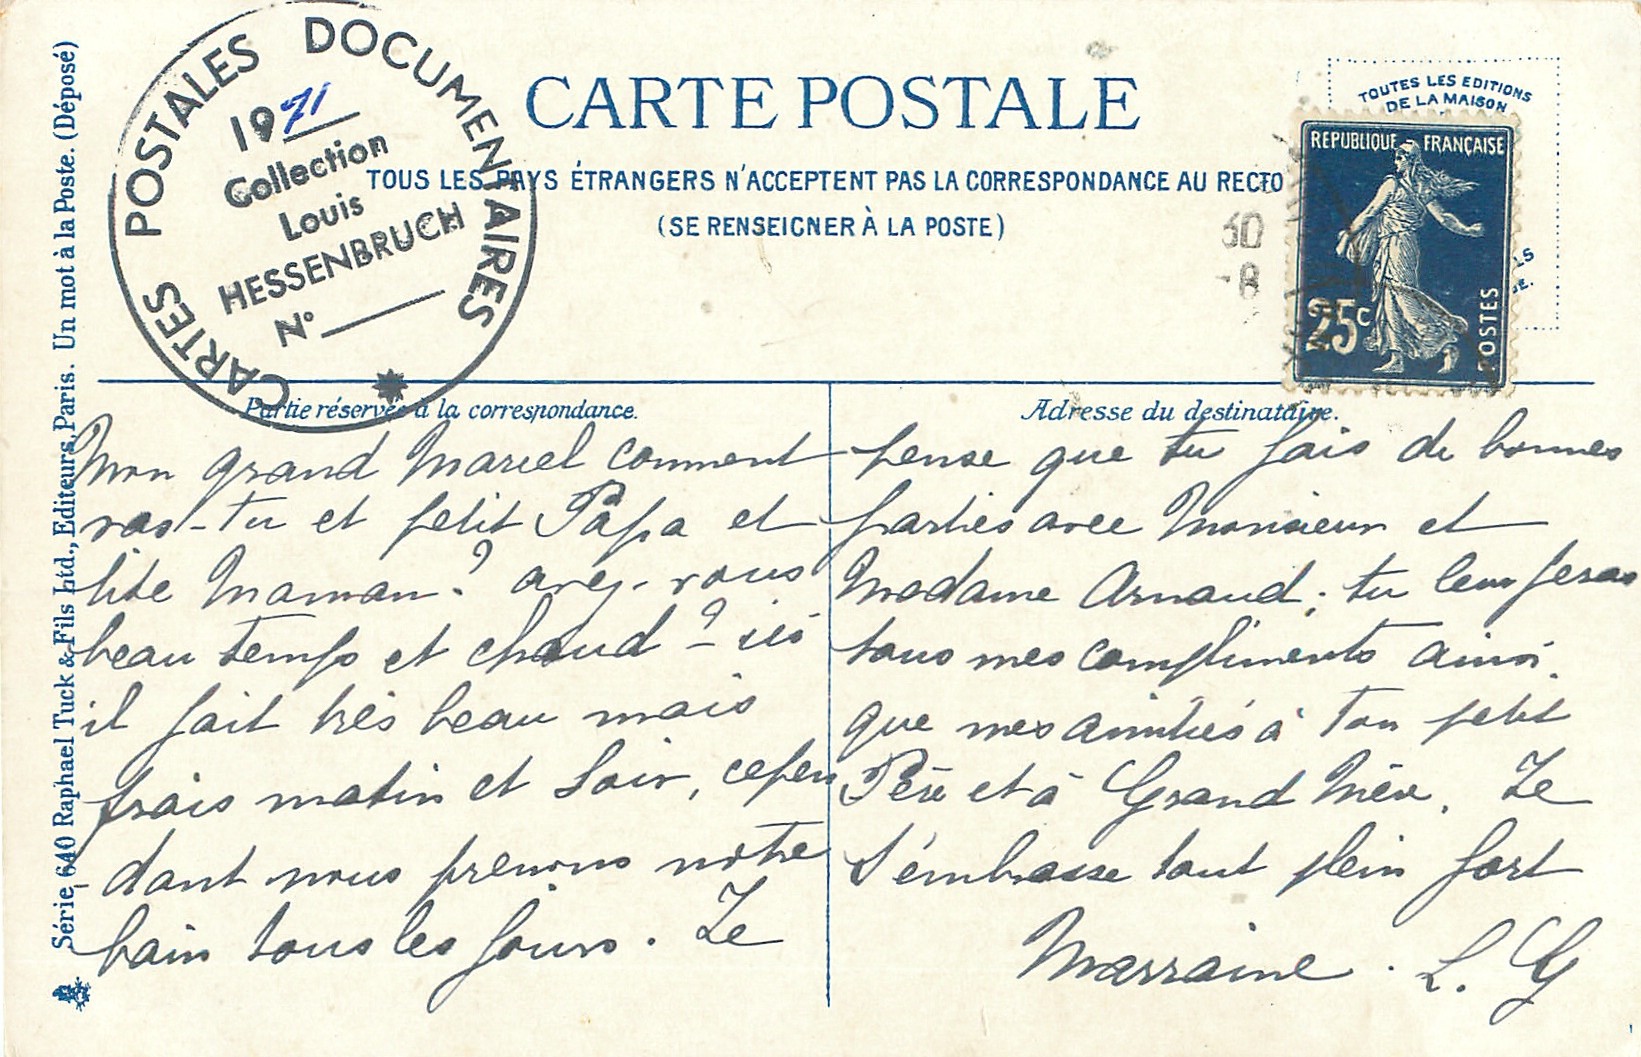 CARTES POSTALES DOCUMENTAIRES
1971
Collection
Louis
HESSENBRUCH
N°
CARTE POSTALE
TOUS LES PAYS ÉTRANGERS N'ACCEPTENT PAS LA CORRESPONDANCE AU RECTO
(SE RENSEIGNER À LA POSTE)
TOUTES LES EDITIONS
DE LA MAISON
REPUBLIQUE FRANÇAISE
25c
POSTES
30
-8
LS
Série 640 Raphael Tuck & Fils Ltd., Editeurs, Paris. Un mot à la Poste. (Déposé)
Partie réservée à la correspondance.
Mon grand Marcel comment
vas-tu et petit Papa et
tite Maman ? avez-vous
beau temps et chaud ? - ici
il fait très beau mais
frais matin et soir, cepen
-dant nous prenons notre
bain tous les jours. Je
Adresse du destinataire.
pense que tu fais de bonnes
parties avec Monsieur et
Madame Arnaud ; tu leur feras
tous mes compliments ainsi
que mes amitiés à ton petit
Père et à Grand Mère. Je
t'embrasse tout plein fort
Marraine. L. G